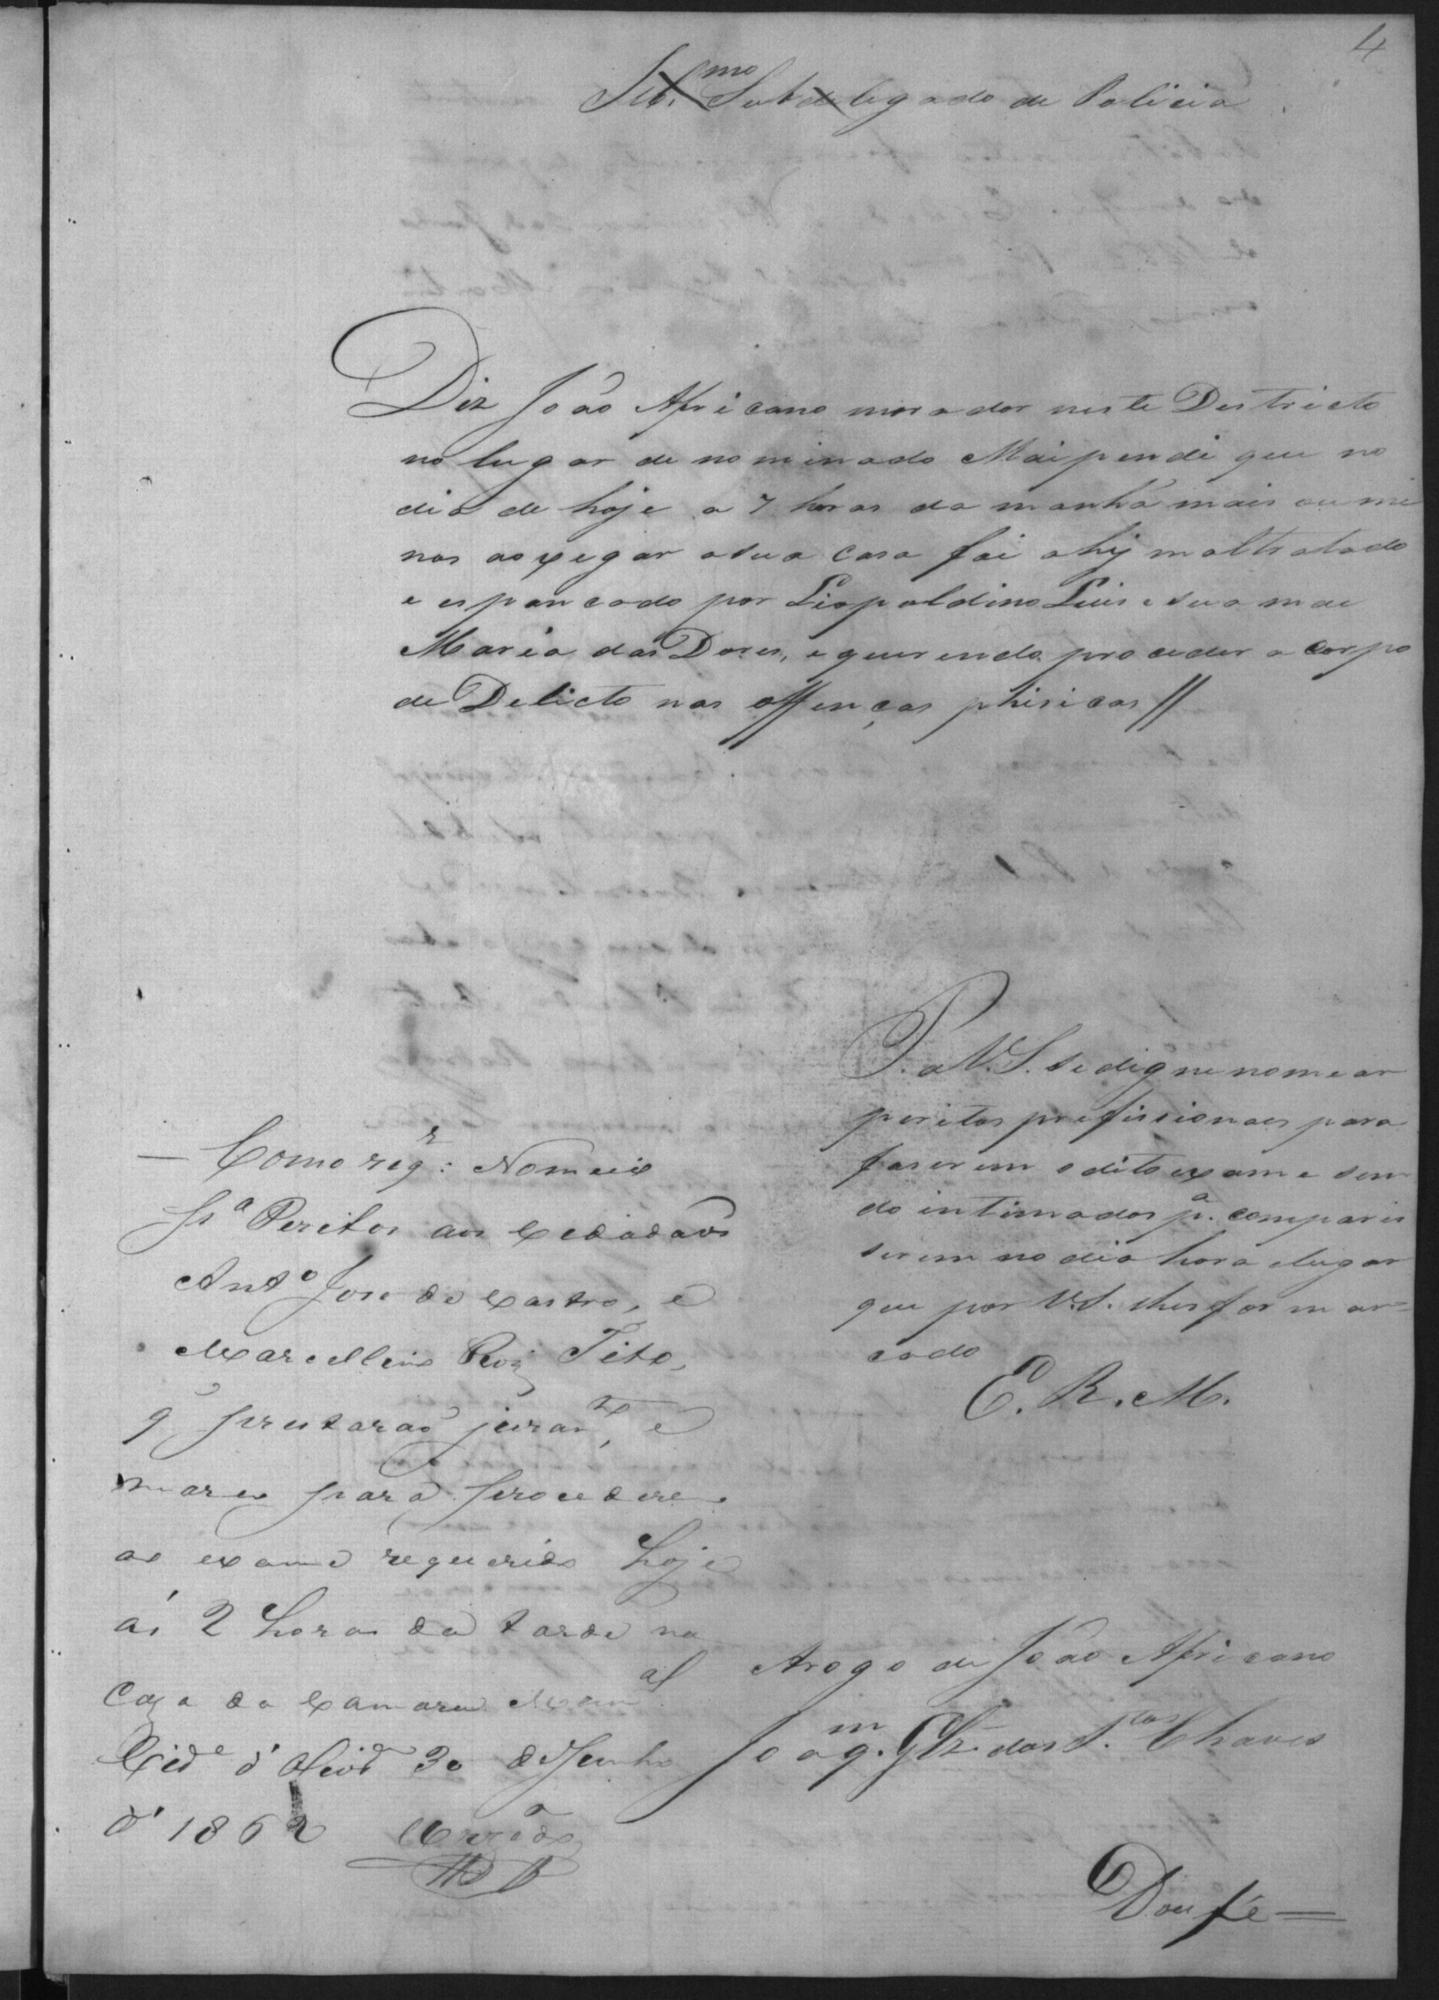 4
Subdelegado de Policia
Diz João Africano morador neste Destricto
no lugar denominado Maipendi que no
dia de hoje a 7 horas da manhã mais ou me
nos ao xegar a sua casa foi ahy maltratado
e espancado por Liopoldino Luis e sua mai
Maria das Dores, e querendo proceder a corpo
de Delicto nas offenças phisicas //
P. a V. S. se digne nomear
peritos profissionaes para
faserem o dito exame sen
do intimados pª. comparis
serem no dia hora e lugar
que por V. S. lhes for mar=
cado
E. R. M.
— Como reqr: Nomeio
pª Peritos aos Cidadãos
Antº Jose de Castro, e
Marcellino Roiz Tito,
q' prestarão juramto, e
marco para procederem
ao exame requerido hoje
ás 2 horas da tarde na
Caza da Camara Munal
Cide d' 30 de Junho
d' 1862
Arogo de João Africano
Joaqm. Glz. dos Stos Chaves
Dou fé =